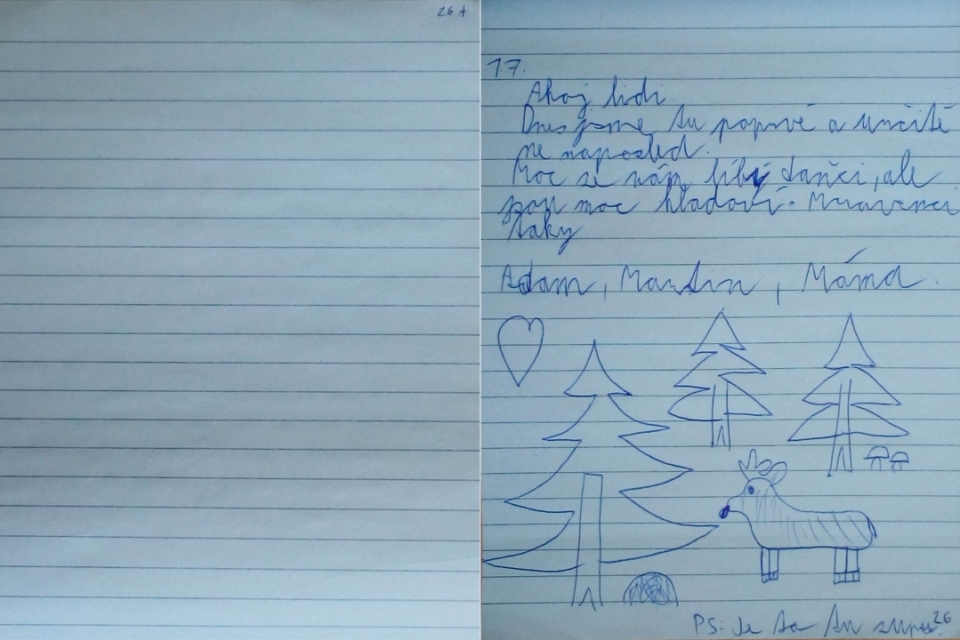 26 A
17.
Ahoj lidi
Dnes jsme tu poprvé a určitě
ne naposled.
Moc se nám líbí daňci, ale
jsou moc hladoví. Mravenci
taky
Adam, Martin, Máma.
PS: Je to tu super
26